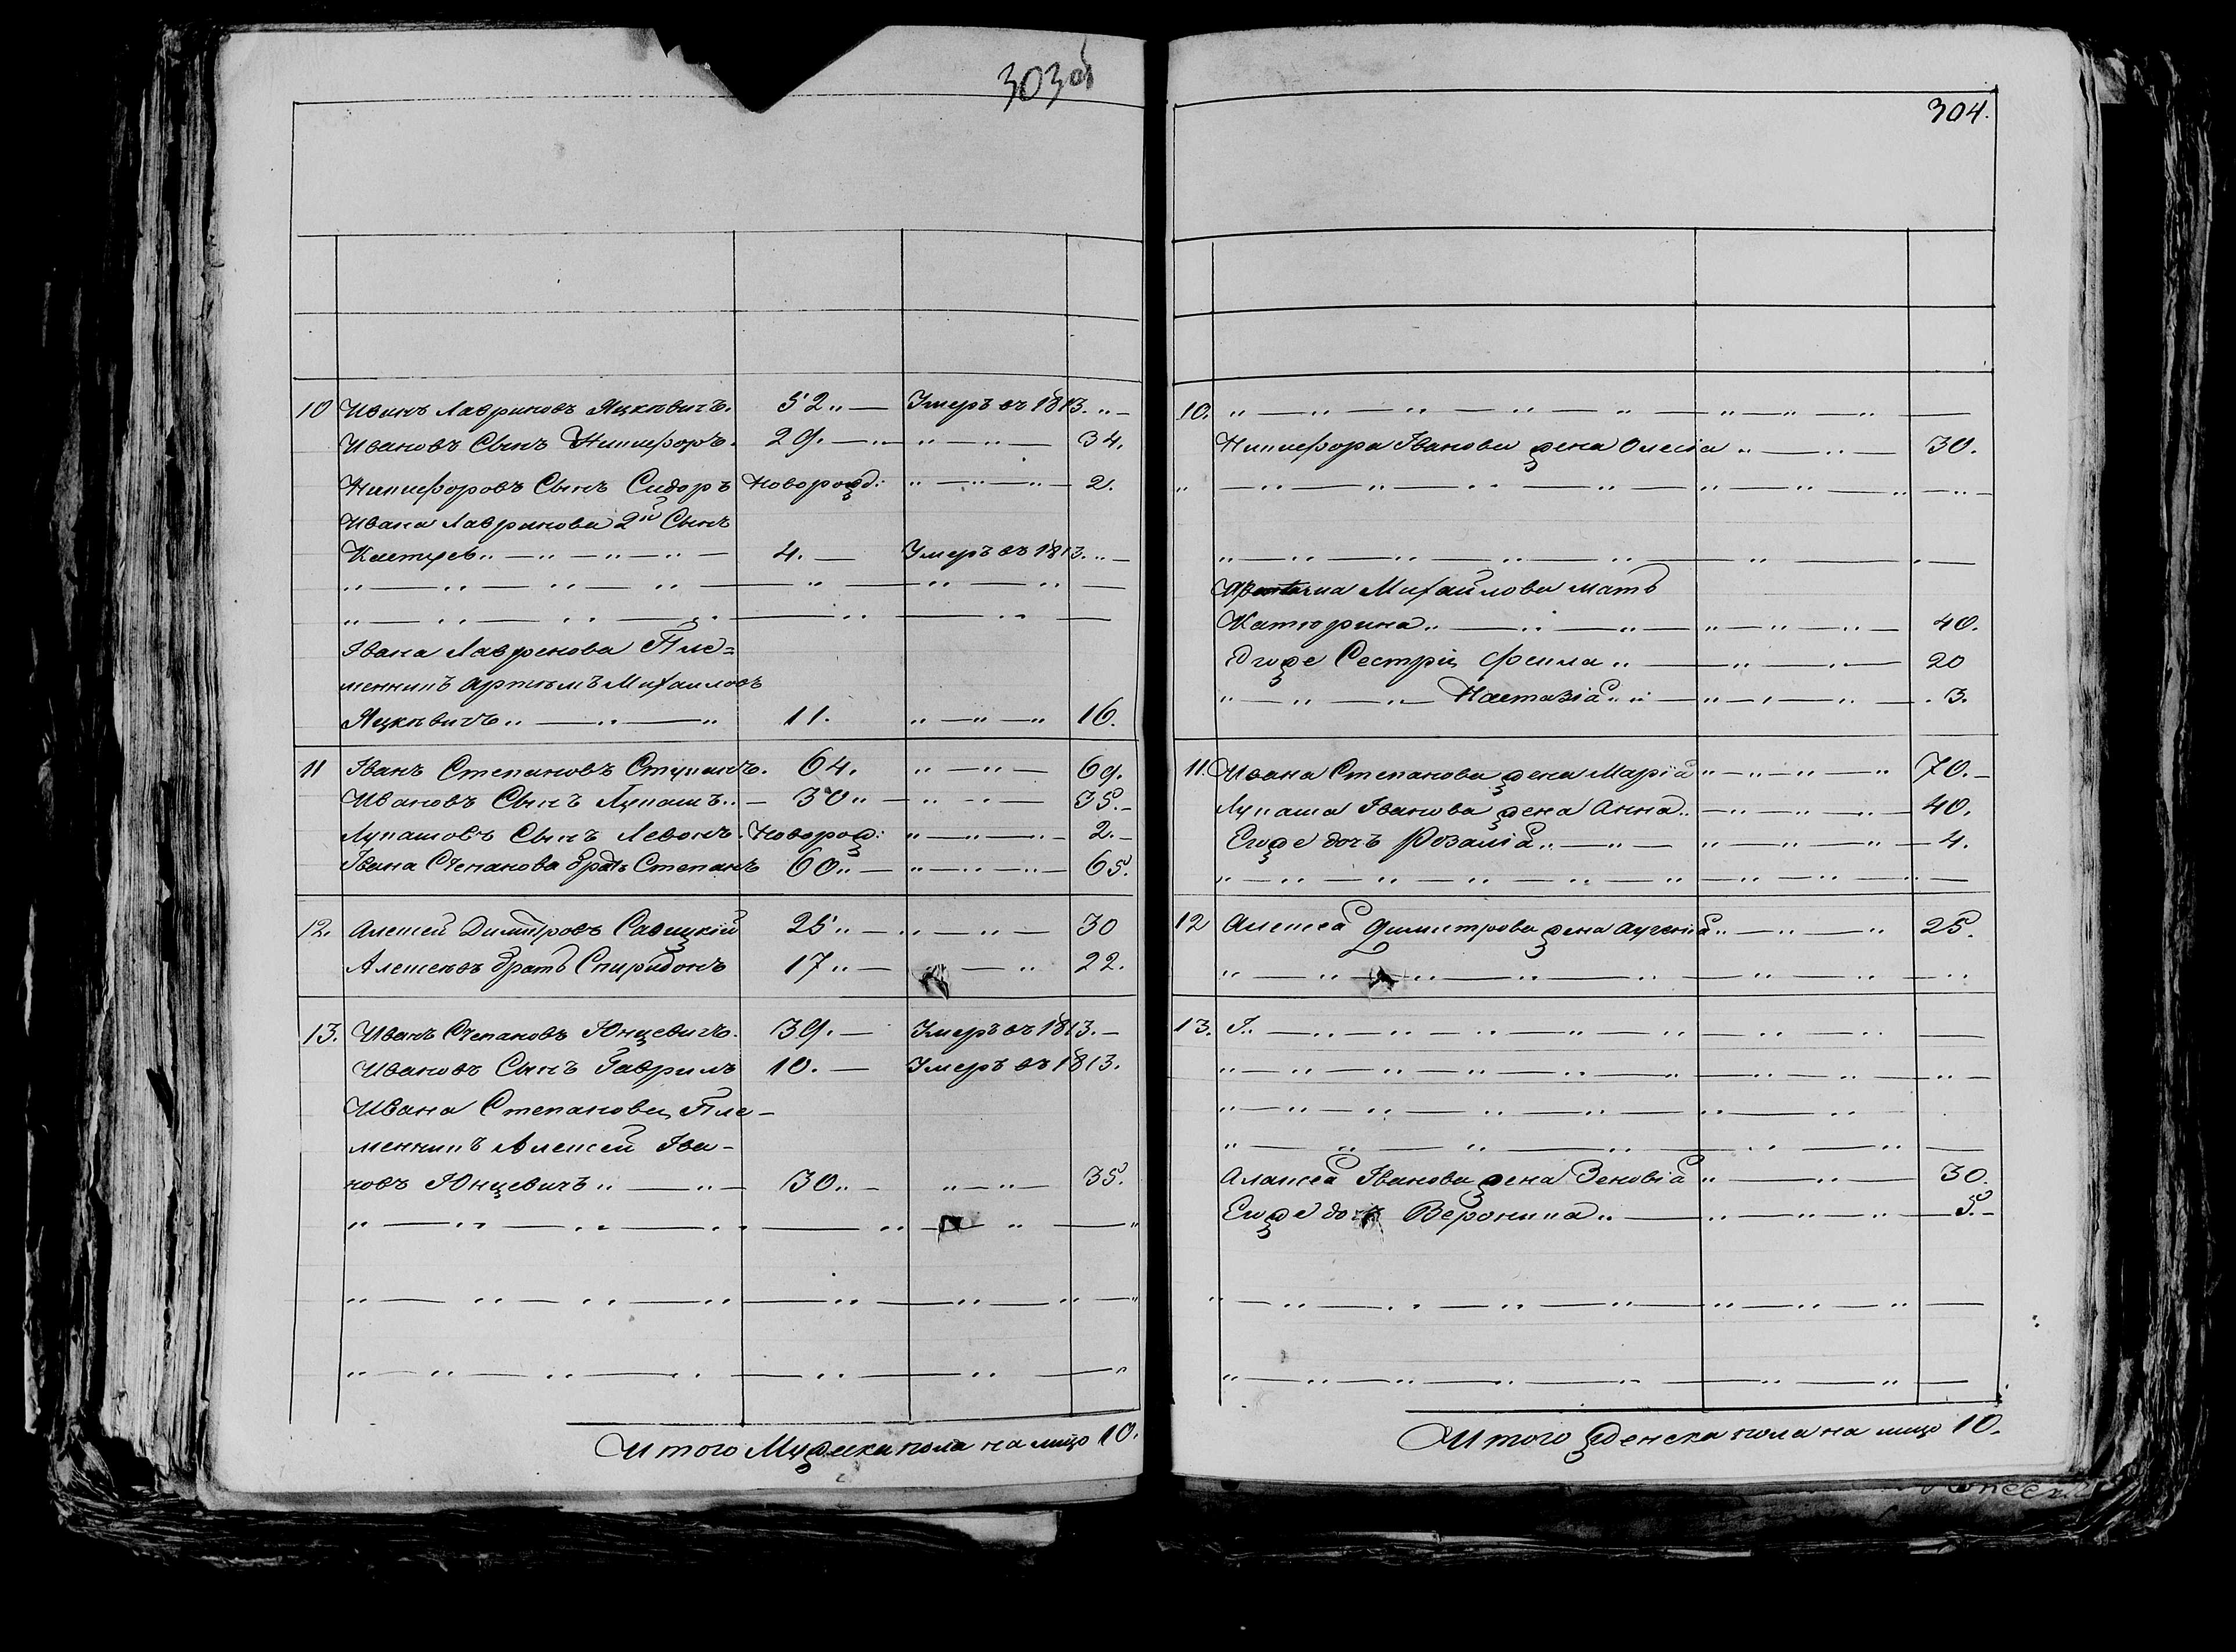 303об
10 Иванъ Лавриновъ Яцкѣвичъ. 52 „ — Умеръ въ 1813. „ —
Ивановъ Сынъ Никифоръ. 29. — „ „ — „ — 34.
Никифоровъ Сынъ Сидоръ Новорожд: „ — „ — „ 2.
Ивана Лавринова 2й Сынъ
4. — Умеръ въ 1813. „ —
Ивана Лавренова Пле=
менникъ Артемъ Михайловъ
Яцкѣвичъ „ — „ — „ 11. „ — „ — „ 16.
11 Иванъ Степановъ 64. „ — „ — 69.
Ивановъ Сынъ Лукашъ „ — 30 „ — „ — „ — 35. —
Лукашовъ Сынъ Левонъ. Новорож: „ — „ — „ — 2. —
Ивана Степанова братъ Степанъ 60 „ — „ — „ — „ — 65.
12. Алексей Димитровъ Савицкій 25 „ — „ — „ — 30
Алексѣевъ братъ Спиридонъ 17 „ — — „ 22.
13. Иванъ Степановъ Юнцевичъ. 39. — Умеръ въ 1813. —
Ивановъ Сынъ Гаврилъ 10. — Умеръ въ 1813.
Ивана Степанова Пле-
менникъ Алексей Ива-
новъ Юнцевичъ „ — „ — 30 „ — „ — „ — 35.
Итого Мужеска пола на лицо 10.
304.
10. „ — „ — „ — „ — „ — „ — „ —
Никифора Иванова жена Олесія „ — „ — 30.
Михайлова мать
Катюрина „ — „ — „ — „ — „ — „ — 40.
Егоже Сестры Фекла „ — „ — „ — 20
„ — „ — „ — Настазія „ „ — „ — „ — „ — 3.
11. Ивана Степанова жена Марія „ — „ — „ — „ 70. —
Лукаша Иванова жена Анна „ — „ — „ — 40.
Егоже дочь Розалія „ — „ — „ — „ — „ — 4.
12 Алексея Димитрова жена „ — „ — „ 25.
13.
Алексея Иванова жена Зеновія „ — „ — 30.
Егоже дочь Вероника „ — „ — „ — „ — 5. —
Итого женска пола на лицо 10.